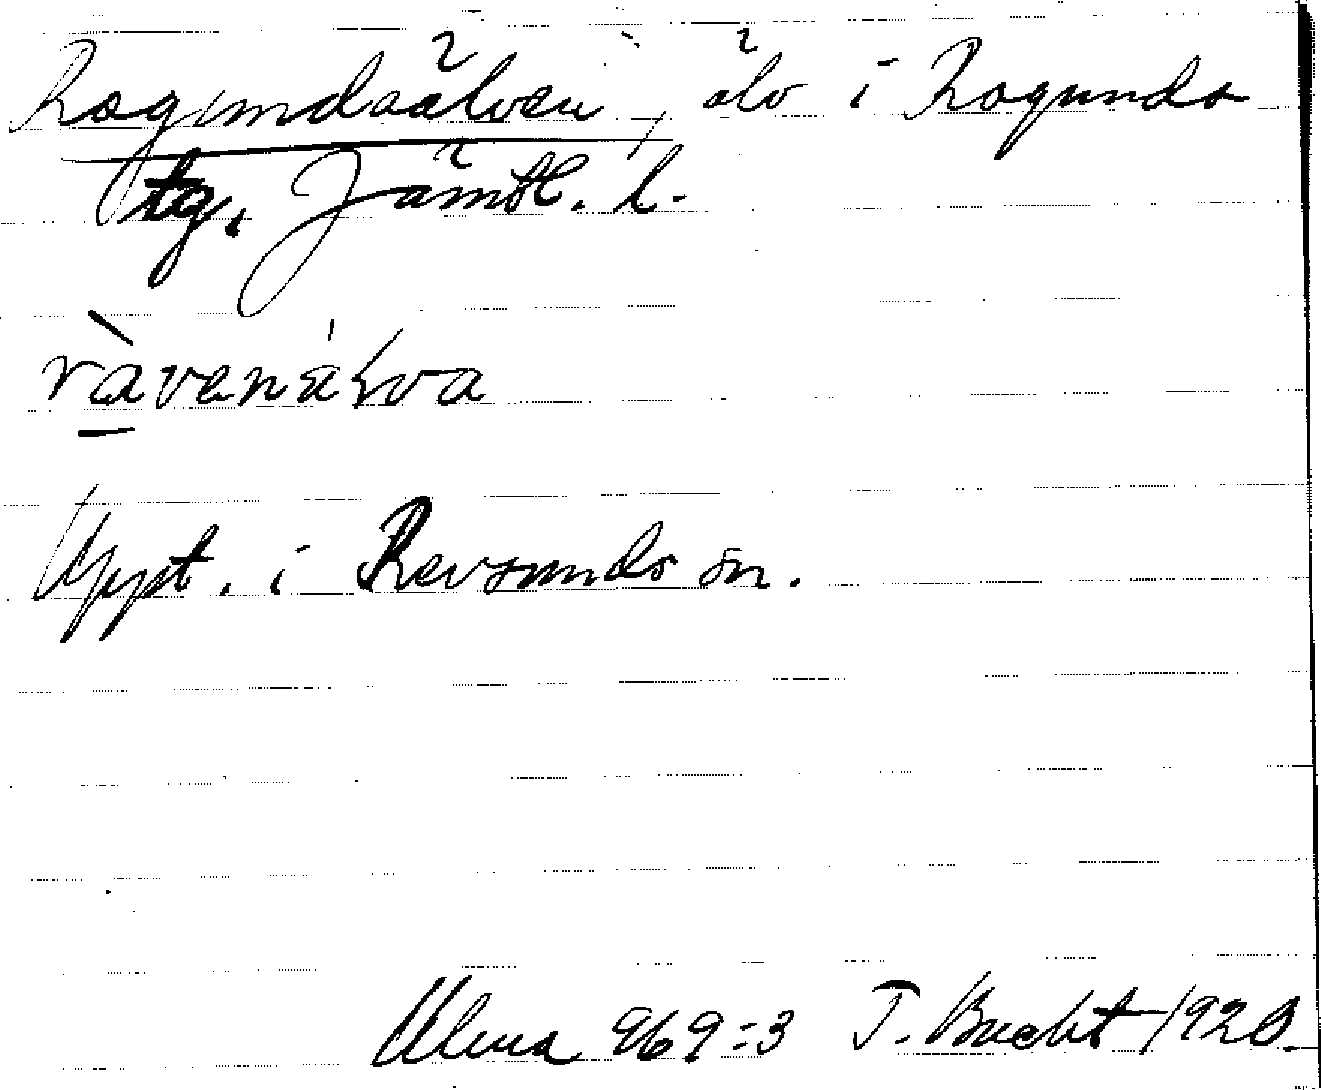 Ragundaälven, älv i Ragunda
tg, Jämtl. l.
ràvenálva
Uppt. i Revsunds sn.
Ulma 969:3 T. Bucht 1920.